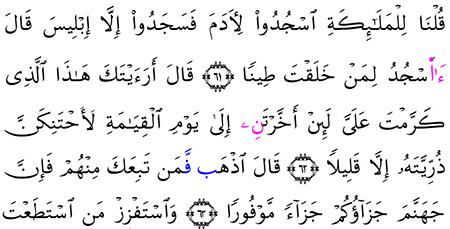 قُلْنَا لِلْمَلَٰٓئِكَةِ ٱسْجُدُوا۟ لِأٓدَمَ فَسَجَدُوٓا۟ إِلَّآ إِبْلِيسَ قَالَ
ءَا۬سْجُدُ لِمَنْ خَلَقْتَ طِينًا ﴿٦١﴾ قَالَ أَرَءَيْتَكَ هَٰذَا ٱلَّذِى
كَرَّمْتَ عَلَىَّ لَئِنْ أَخَّرْتَنِۦ إِلَىٰ يَوْمِ ٱلْقِيَٰمَةِ لَأَحْتَنِكَنَّ
ذُرِّيَّتَهُۥٓ إِلَّا قَلِيلًا ﴿٦٢﴾ قَالَ ٱذْهَب فَّمَن تَبِعَكَ مِنْهُمْ فَإِنَّ
جَهَنَّمَ جَزَآؤُكُمْ جَزَآءً مَّوْفُورًا ﴿٦٣﴾ وَٱسْتَفْزِزْ مَنِ ٱسْتَطَعْتَ